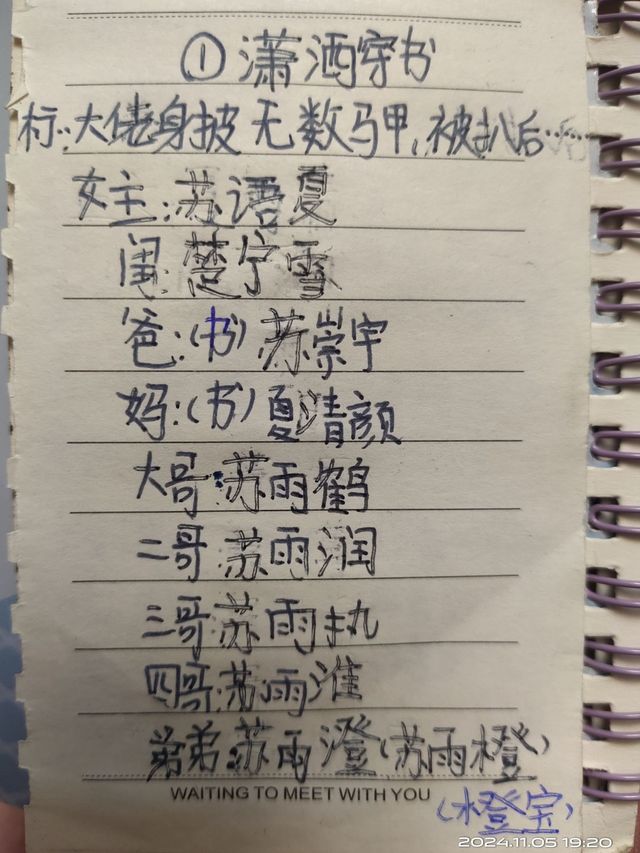 ①潇洒穿书
标:大佬身披无数马甲,被扒后……
女主:苏语夏
闺:楚宁雪
爸:(书)苏崇宇
妈:(书)夏清颜
大哥:苏雨鹤
二哥 苏雨润
三哥 苏雨执
四哥:苏雨淮
弟弟:苏雨澄(苏雨橙)
WAITING TO MEET WITH YOU
(橙宝)
2024.11.05 19:20